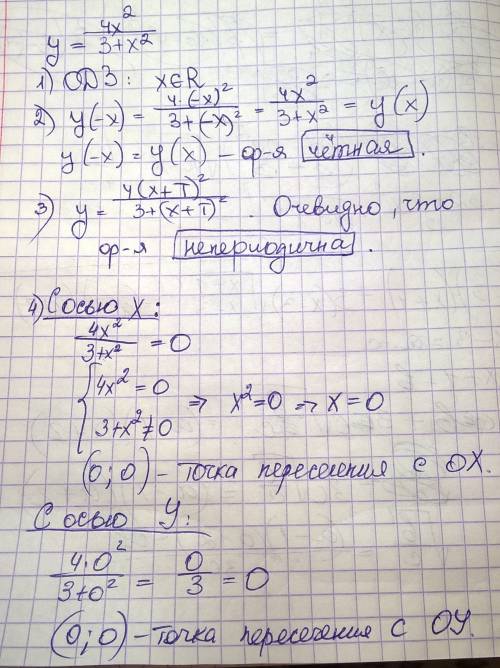 y = 4x²/(3+x²)
1) ОДЗ: x∈R
2) y(-x) = 4·(-x)²/(3+(-x)²) = 4x²/(3+x²) = y(x)
y(-x) = y(x) – ф-я чётная.
3) y = 4(x+T)²/(3+(x+T)²). Очевидно, что
ф-я непериодична.
4) С осью X:
4x²/(3+x²) = 0
{4x² = 0
3+x² ≠ 0 ⇒ x² = 0 ⇒ x = 0
(0;0) – точка пересечения с OX.
С осью Y:
4·0²/(3+0²) = 0/3 = 0
(0;0) – точка пересечения с OY.